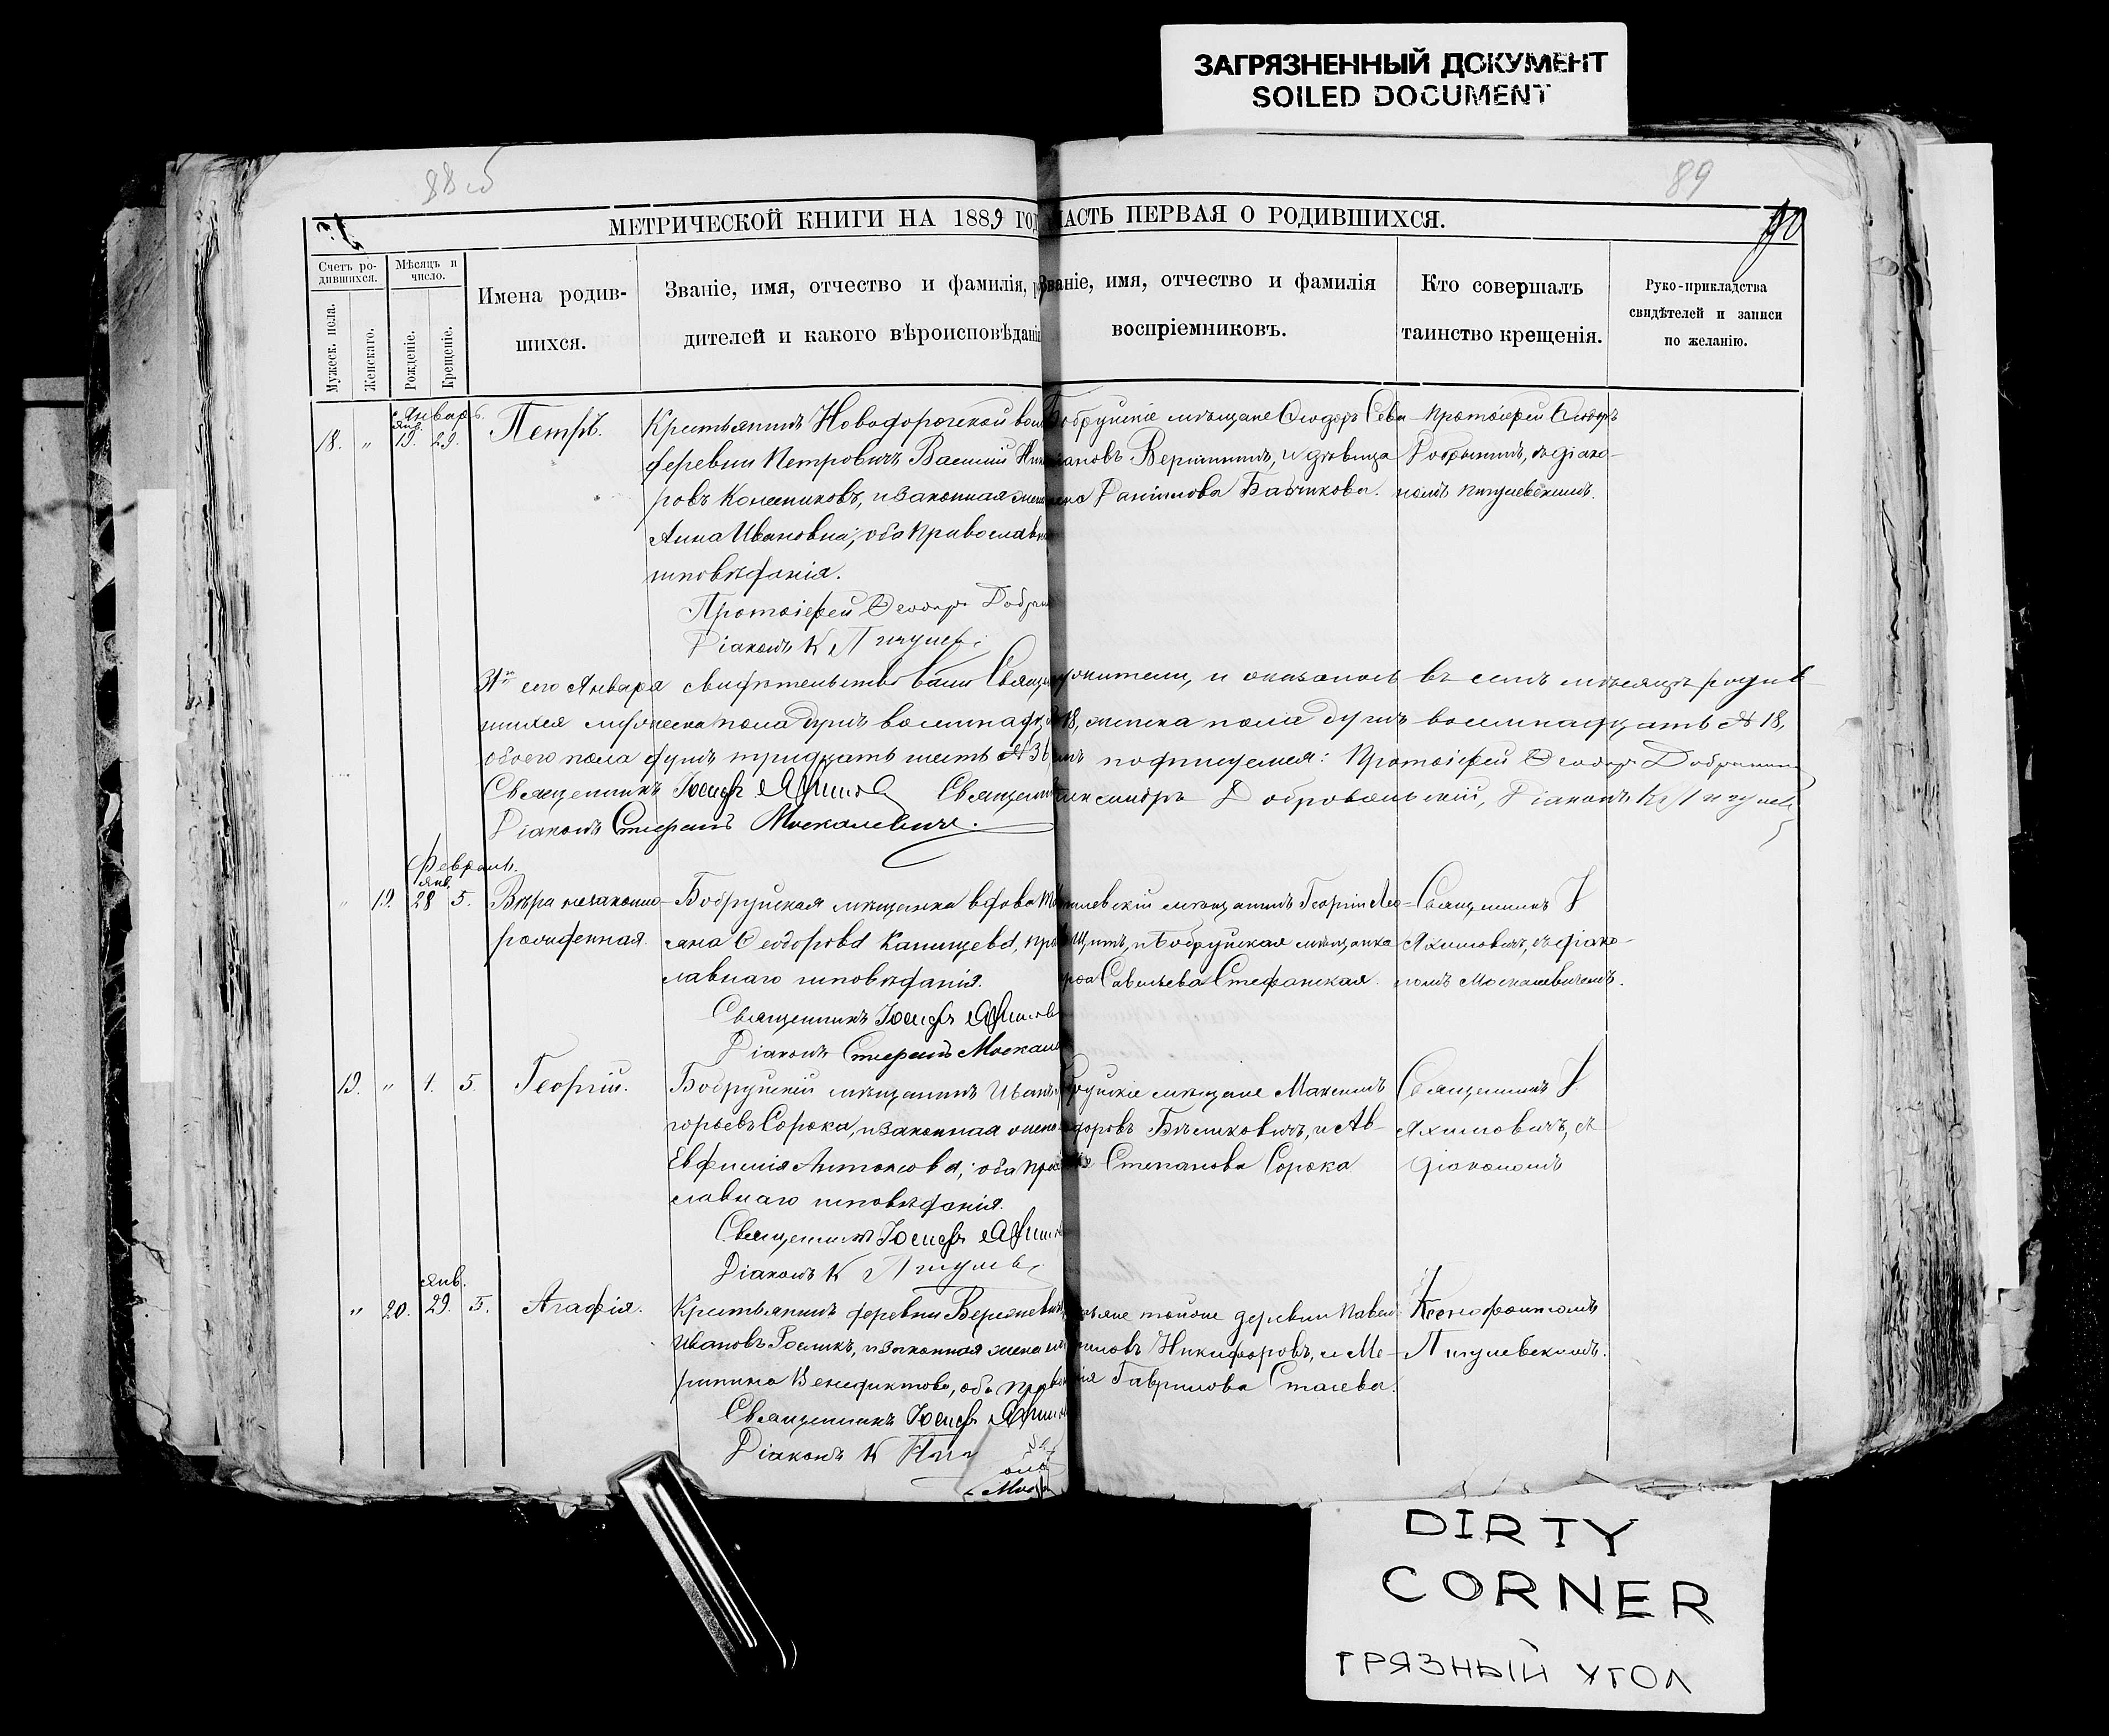 ЗАГРЯЗНЕННЫЙ ДОКУМЕНТ
SOILED DOCUMENT
88 об
89
90
МЕТРИЧЕСКОЙ КНИГИ НА 1889 ГОД
ЧАСТЬ ПЕРВАЯ О РОДИВШИХСЯ.
Счетъ ро-
дившихся.
Мужеск. пола.
Женскаго.
Мѣсяцъ и
число.
Рожденіе.
Крещеніе.
Имена родив-
шихся.
Званіе, имя, отчество и фамилія,
дителей и какого вѣроисповѣданія
Званіе, имя, отчество и фамилія
воспріемниковъ.
Кто совершалъ
таинство крещенія.
Руко-прикладства
свидѣтелей и записи
по желанію.
Январь.
Янв.
18. " 19. 29. Петръ.
Крестьянинъ Новодорожской вол
деревни Петровичъ Василій
ровъ Колесниковъ, и законная жена
Анна Иванова; оба православна
исповѣданія.
Протоіерей Ѳеодоръ Добрын
Діаконъ К Пигулев
Бобруйскіе мѣщане Ѳеодоръ
Вершининъ, и дѣвица
Даніилова
Протоіерей Ѳеодоръ
Добрынинъ, съ діако-
номъ Пигулевскимъ.
31го сего Января свидѣтельствовали и оказалось въ семъ мѣсяцѣ родив-
шихся мужеска пола душъ восемнадцать 18, женска пола душъ восемнадцать № 18,
обоего пола душъ тридцать шесть № 36, подписуемся: Протоіерей Ѳеодоръ Добрынинъ
Священникъ Іосифъ Священ Добровольскій, Діаконъ К Пигулев
Діаконъ Стефанъ Москалевичъ.
Февраль.
Янв
" 19. 28 5. Вѣра незаконно-
рожденная.
Бобруйская мѣщанка вдова
Ѳеодорова прав
лавнаго исповѣданія.
Священникъ Іосифъ
Діаконъ Стефанъ Москале
мѣщанинъ Георгій
и Бобруйская мѣщанка
Савельева Стефанская.
Священникъ І
Яхимовичъ, съ діако-
номъ Москалевичемъ.
19. " 1. 5. Георгій.
Бобруйскій мѣщанинъ Иванъ
горьевъ Сорока, и законная жена
Евфимія Антонова; оба прав
славнаго исповѣданія.
Священникъ Іосифъ
Діаконъ К Пигулев
мѣщане Максимъ
доровъ Бѣликовичъ, и Ав-
Степанова Сорока
Священникъ І
Яхимовичъ, съ
діакономъ
Янв.
" 20. 29. 5. Агафія.
Крестьянинъ деревни
Ивановъ и законная жена
Венедиктова, оба прав
Священникъ Іосифъ
Діаконъ К
тойже деревни Павел
Никифоровъ, и Ме-
Гаврилова
Ксенофонтомъ
Пигулевскимъ.
DIRTY
CORNER
ГРЯЗНЫЙ УГОЛ